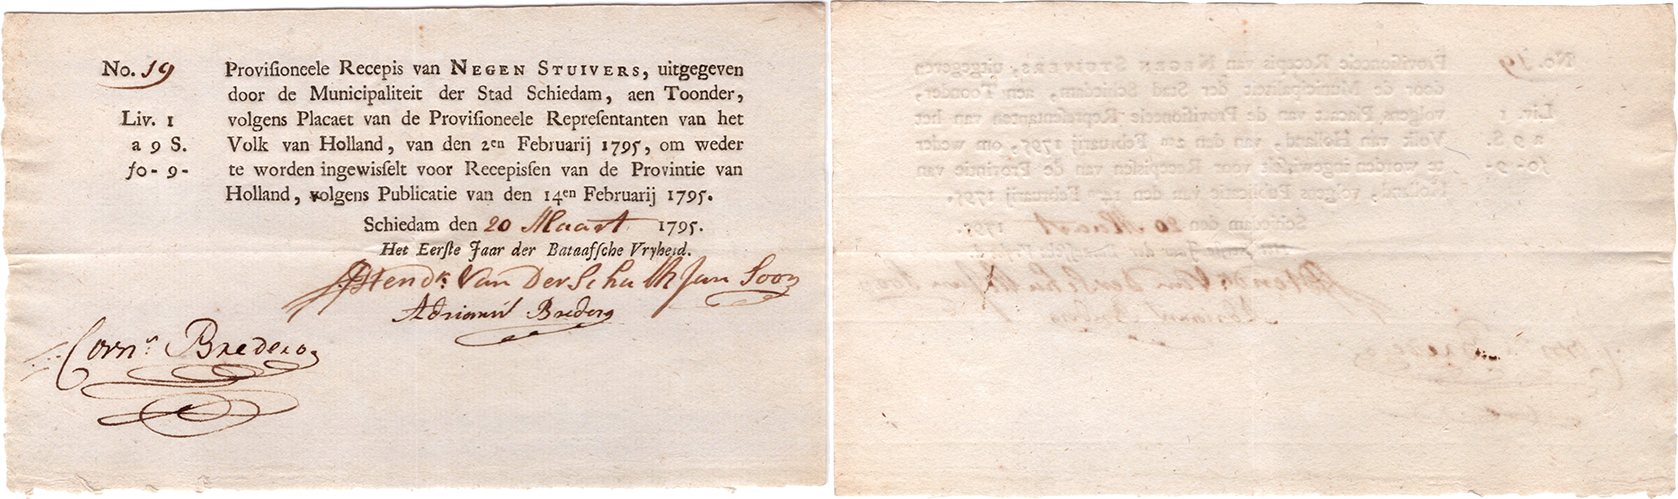 No. 19
Provisioneele Recepis van NEGEN STUIVERS, uitgegeven
door de Municipaliteit der Stad Schiedam, aen Toonder,
Liv. 1
volgens Placaet van de Provisioneele Repreſentanten van het
a 9 S.
Volk van Holland, van den 2en Februarij 1795, om weder
ſo- 9 -
te worden ingewisſelt voor Recepisſen van de Provintie van
Holland, volgens Publicatie van den 14en Februarij 1795.
Schiedam den 20 Maart 1795.
Het Eerſte Jaar der Bataafſche Vryheid.
Hendk. Van Der Schalk Jan Soon
Adrianus Bredero
Corns. Bredero